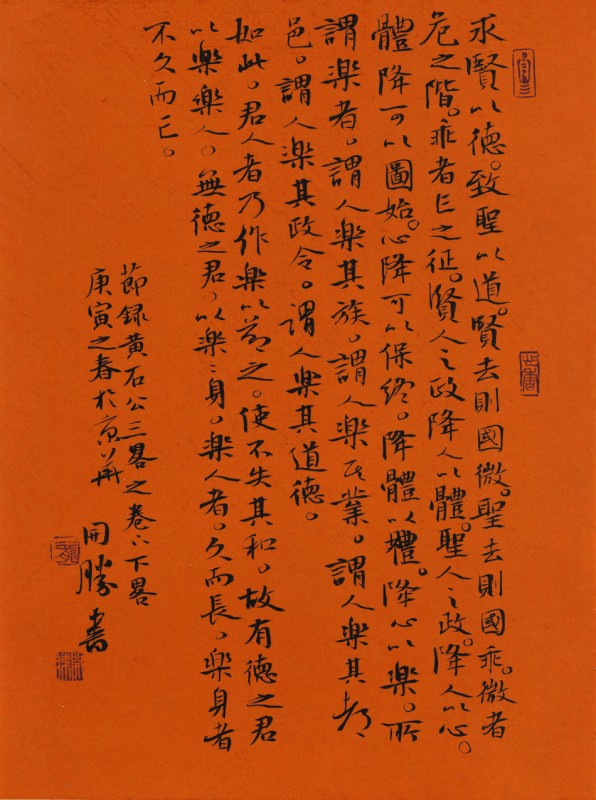 求賢以德。致聖以道。賢去則國微。聖去則國乖。微者
危之階。乖者亡之征。賢人之政降人以體。聖人之政。降人以心。
體降可以圖始。心降可以保終。降體以禮。降心以楽。所
謂楽者。謂人楽其族。謂人楽其業。謂人楽其都
邑。謂人楽其政令。謂人楽其道德。
如此。君人者乃作楽以節之。使不失其和。故有德之君
以楽楽人。無德之君、以楽〻身。楽人者。久而長。楽身者
不久而亡。
節録黄石公三畧之卷下畧
庚寅之春於京華
開勝書